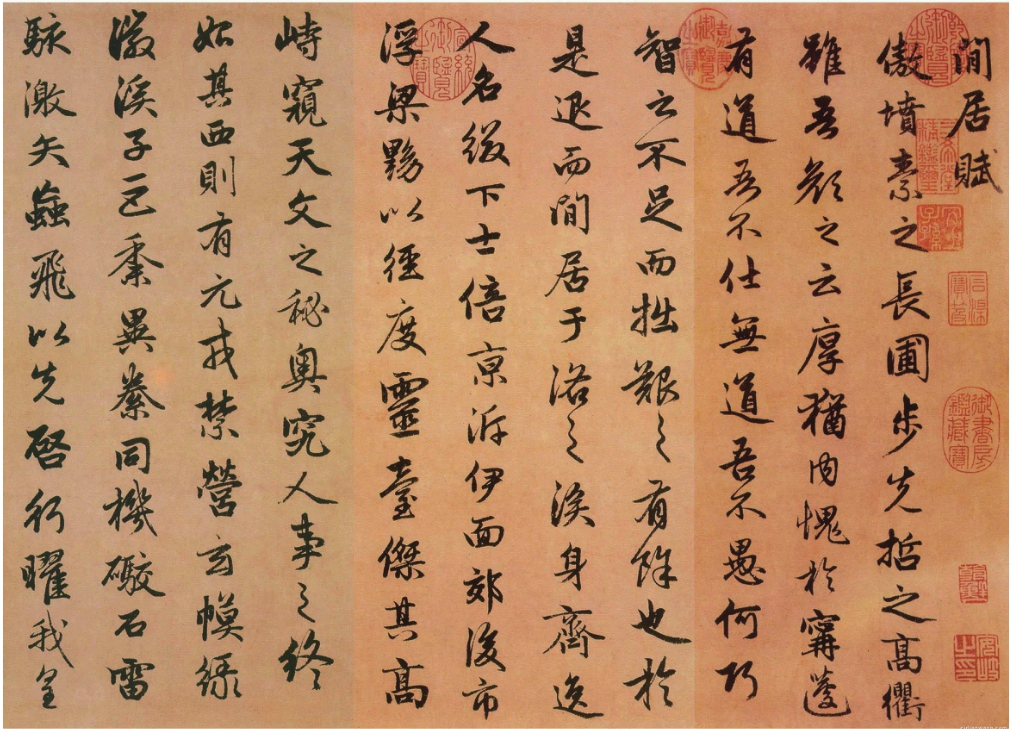 閒居賦
傲墳素之長圃步先哲之高衢
雖吾顏之云厚猶內愧於寗蘧
有道吾不仕無道吾不愚何巧
智之不足而拙艱之有餘也於
是退而閒居于洛之涘身齊逸
人名綴下士倍京泝伊面郊後市
浮梁黝以徑度靈臺傑其高
峙窺天文之秘奥究人事之終
始其西則有元戎禁營玄幙綠
徽溪子巨黍異絭同機礮石雷
駭激矢蝱飛以先啓行曜我皇